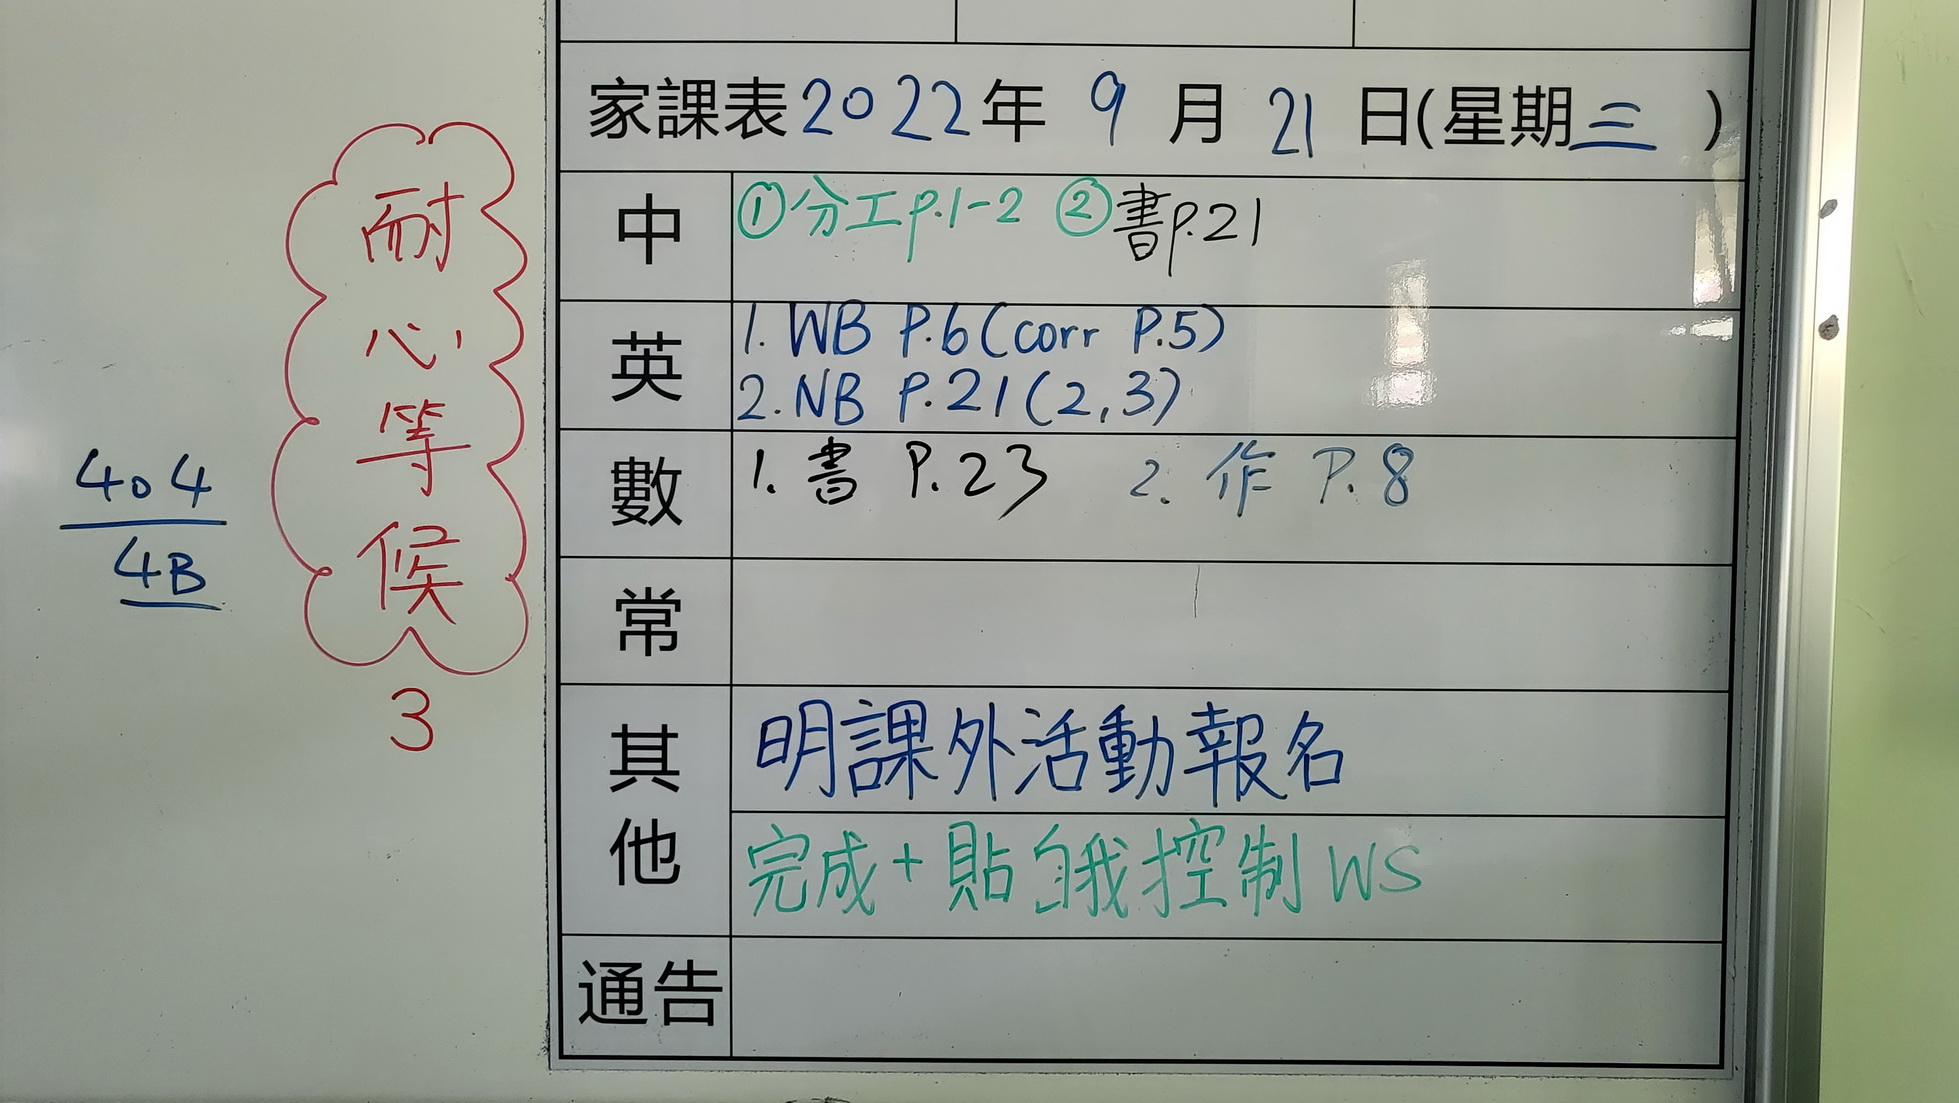 家課表2022年 9 月 21 日(星期三 )
中 ①分工p.1-2 ②書p.21
英 1. WB P.6(corr P.5)
2. NB P.21(2,3)
數 1. 書 P.23 2. 作 P.8
常
其他 明課外活動報名
完成+貼自我控制 WS
通告
耐心等候
3
404
4B